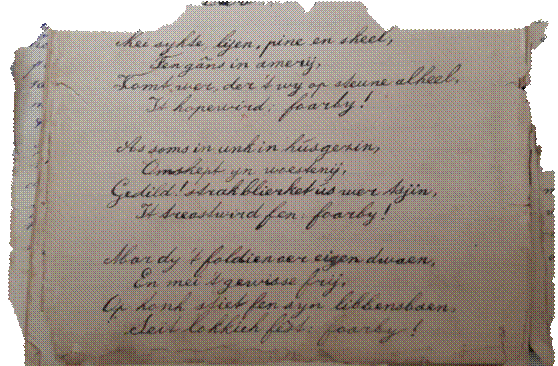 Mei sykte, lijen, pine en skeel,
Fen gâns in amerij,
Komt wer, der 't wy op steune alheel,
It hopewird: foarby!
As soms in unk in húsgezin,
Omskept yn woestenij,
Gedild! strak blierket ús wer
It treastwird fen: foarby!
Mar dy 't foldien oer eigen dwaen,
En mei 't gewisse frij,
Op honk stiet fen syn libbensbaen,
Seit lokkich fest: foarby!